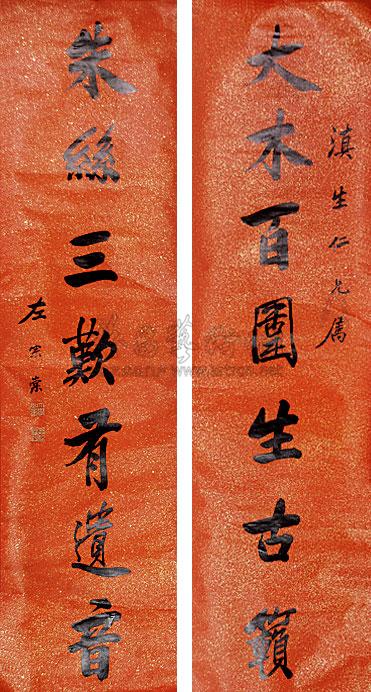 大木百圍生古籟
滇生仁兄属
朱絲三歎有遺音
左宗棠